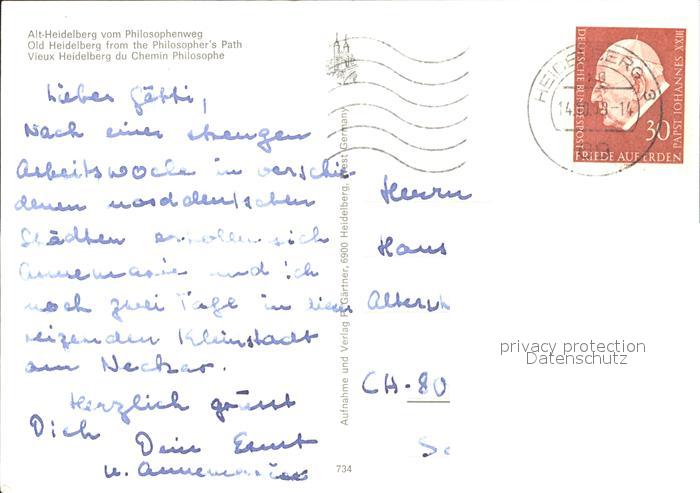 Alt-Heidelberg vom Philosophenweg
Old Heidelberg from the Philosopher's Path
Vieux Heidelberg du Chemin Philosophe
Lieber Götti,
Nach einer strengen
Arbeitswoche in verschie
denen norddeutschen
Städten erholen sich
Annemarie und ich
noch zwei Tage in dieser
reizenden Kleinstadt
am Neckar.
Herzlich grüsst
Dich Dein Ernst
u. Annemarie
Aufnahme und Verlag Gärtner, 6900 Heidelberg, West Germany
734
HEIDELBERG
DEUTSCHE BUNDESPOST
PAPST JOHANNES XXIII
30
FRIEDE AUF ERDEN
Herrn
Hans
CH-80
privacy protection
Datenschutz